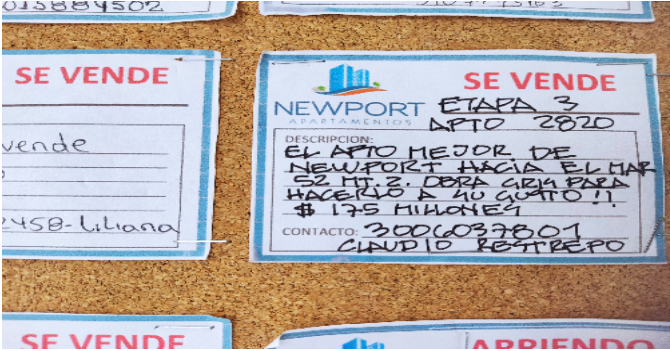 015884502
SE VENDE
vende
2458-Liliana
SE VENDE
NEWPORT
APARTAMENTOS
ETAPA 3
APTO 2820
DESCRIPCION:
EL APTO MEJOR DE
NEWPORT HACIA EL MAR
52 MT.2. OBRA GRIS PARA
HACERLO A SU GUSTO!!
$ 175 MILLONES
CONTACTO: 3006037801
CLAUDIO RESTREPO
SE VENDE
ARRIENDO